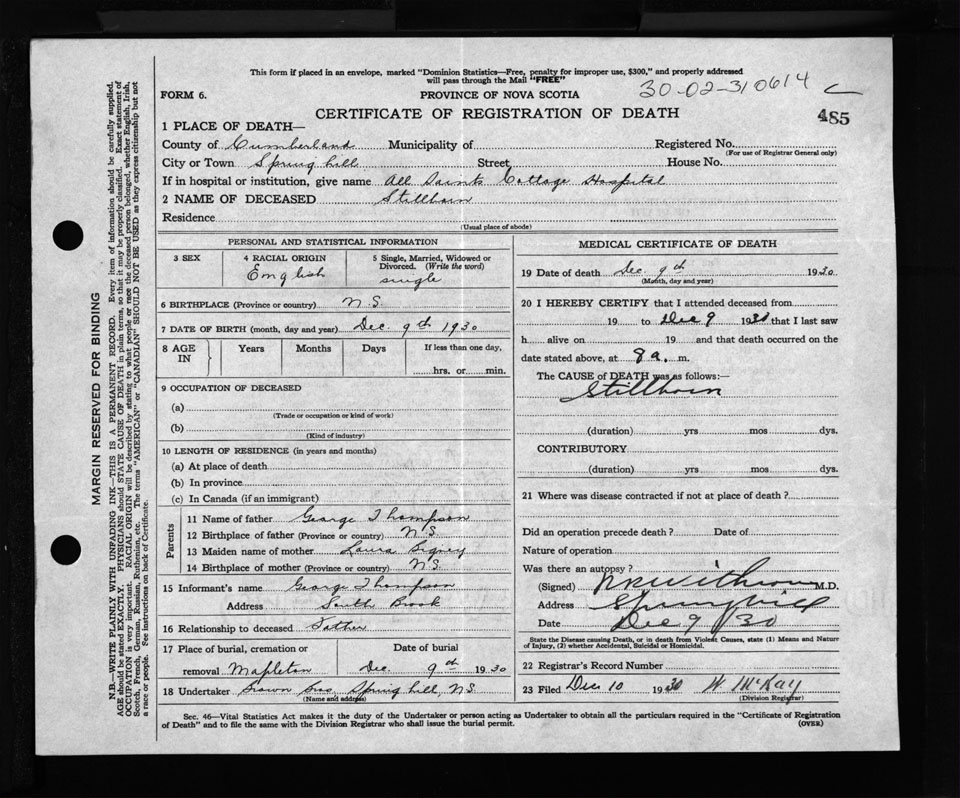 This form if placed in an envelope, marked "Dominion Statistics—Free, penalty for improper use, $300," and properly addressed
will pass through the Mail "FREE"
FORM 6. PROVINCE OF NOVA SCOTIA 30-02-310614
CERTIFICATE OF REGISTRATION OF DEATH 485
1 PLACE OF DEATH—
County of Cumberland Municipality of Registered No.
(For use of Registrar General only)
City or Town Spring hill Street, House No.
If in hospital or institution, give name All Saints Cottage Hospital
2 NAME OF DECEASED Stillborn
Residence
(Usual place of abode)
PERSONAL AND STATISTICAL INFORMATION
3 SEX 4 RACIAL ORIGIN 5 Single, Married, Widowed or Divorced. (Write the word)
English single
6 BIRTHPLACE (Province or country) N.S.
7 DATE OF BIRTH (month, day and year) Dec. 9th 1930
8 AGE IN Years Months Days If less than one day,
hrs. or min.
9 OCCUPATION OF DECEASED
(a)
(Trade or occupation or kind of work)
(b)
(Kind of industry)
10 LENGTH OF RESIDENCE (in years and months)
(a) At place of death
(b) In province
(c) In Canada (if an immigrant)
Parents
11 Name of father George Thompson
12 Birthplace of father (Province or country) N.S.
13 Maiden name of mother Laura
14 Birthplace of mother (Province or country) N.S.
15 Informant's name George Thompson
Address South Brook
16 Relationship to deceased Father
17 Place of burial, cremation or Date of burial
removal Mapleton Dec. 9th 1930
18 Undertaker Brown Bros Spring hill, N.S.
(Name and address)
MEDICAL CERTIFICATE OF DEATH
19 Date of death Dec. 9th 1930
(Month, day and year)
20 I HEREBY CERTIFY that I attended deceased from
19 to Dec 9 1930 that I last saw
h alive on 19 and that death occurred on the
date stated above, at 8 a. m.
The CAUSE of DEATH was as follows:—
Stillborn
(duration) yrs mos dys.
CONTRIBUTORY
(duration) yrs mos dys.
21 Where was disease contracted if not at place of death?
Did an operation precede death? Date of
Nature of operation
Was there an autopsy?
(Signed) M.D.
Address Springhill
Date Dec 9/30
State the Disease causing Death, or in death from Violent Causes, state (1) Means and Nature
of Injury, (2) whether Accidental, Suicidal or Homicidal.
22 Registrar's Record Number
23 Filed Dec 10 1930 W McKay
(Division Registrar)
Sec. 46—Vital Statistics Act makes it the duty of the Undertaker or person acting as Undertaker to obtain all the particulars required in the "Certificate of Registration
of Death" and to file the same with the Division Registrar who shall issue the burial permit. (OVER)
MARGIN RESERVED FOR BINDING
N.B.—WRITE PLAINLY WITH UNFADING INK—THIS IS A PERMANENT RECORD. Every item of information should be carefully supplied.
AGE should be stated EXACTLY. PHYSICIANS should STATE CAUSE OF DEATH in plain terms, so that it may be properly classified. Exact statement of
OCCUPATION is very important. RACIAL ORIGIN will be described by stating to what people or race the deceased person belonged, whether English, Irish,
Scotch, French, German, Russian, Ruthenian, etc. The terms "AMERICAN" or "CANADIAN" SHOULD NOT BE USED as they express citizenship but not
a race or people. See instructions on back of Certificate.